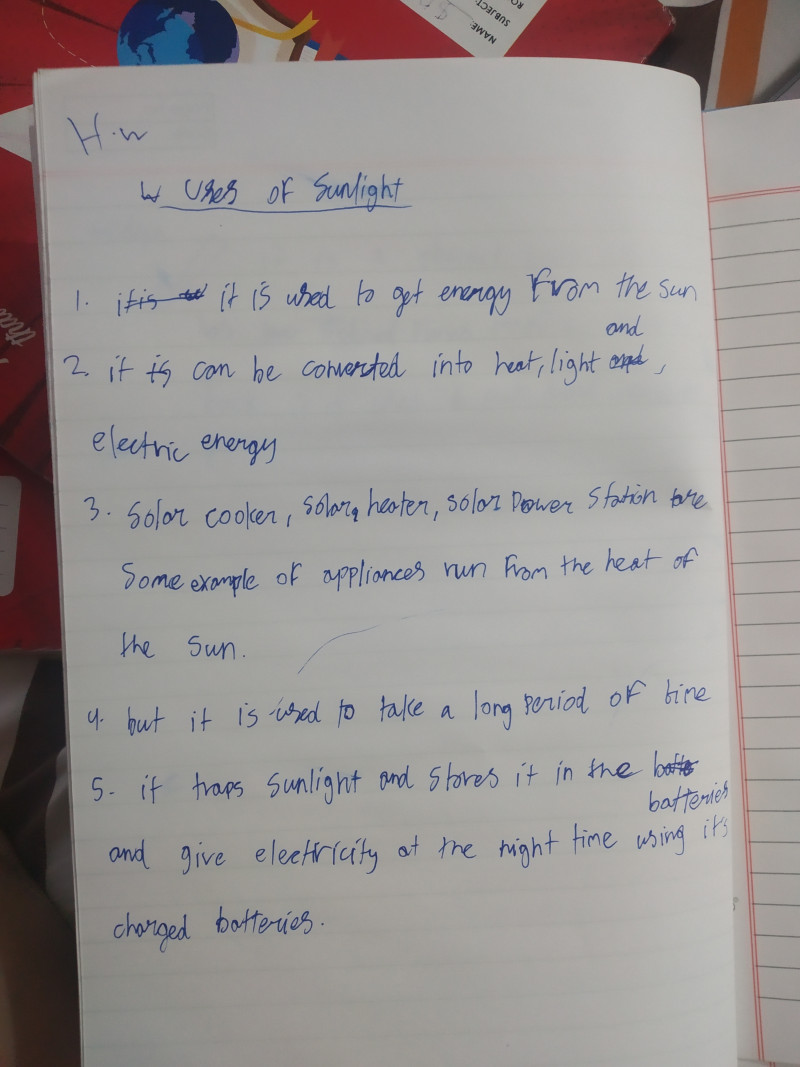 NAME
SUBJECT
RO
that
H.w
Uses of Sunlight
1. it is it is used to get energy from the sun
and
2. it is can be converted into heat, light and,
electric energy
3. Solar cooker, solar heater, solar Power Station are
Some example of appliances run from the heat of
the sun.
4. but it is used to take a long period of time
5. it traps sunlight and stores it in the batte
batteries
and give electricity at the night time using it's
charged batteries.